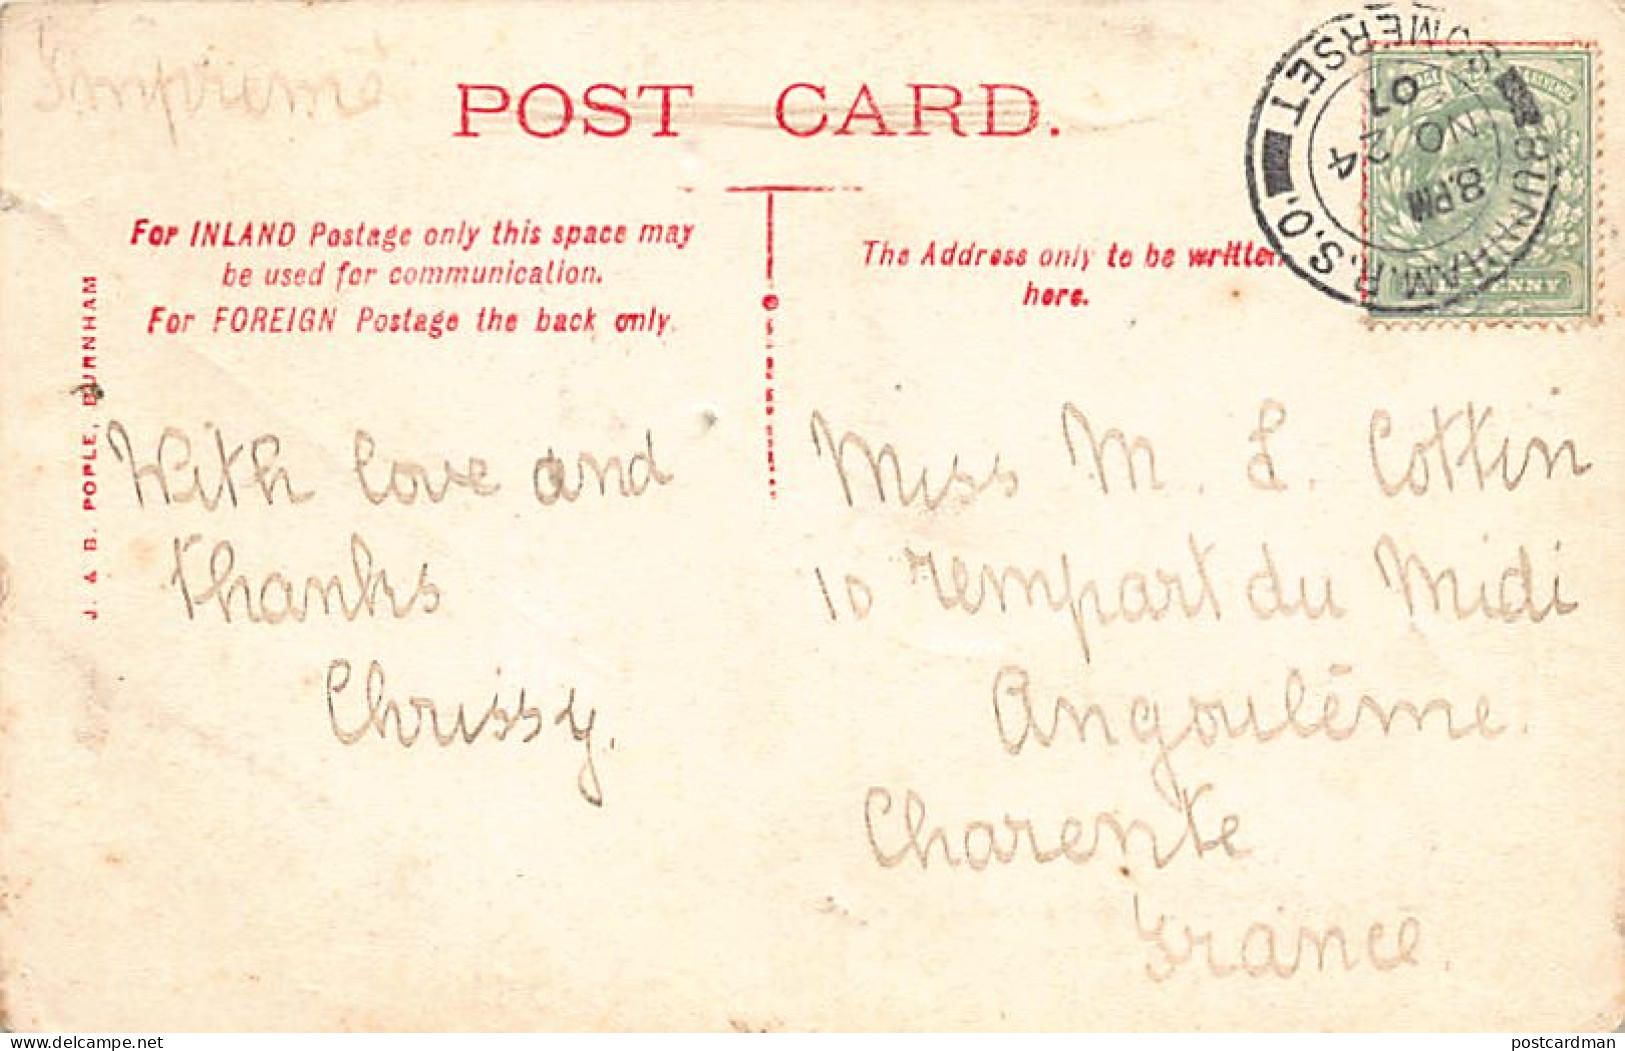 Imprimé
POST CARD.
For INLAND Postage only this space may
be used for communication.
For FOREIGN Postage the back only.
The Address only to be written
here.
J. & B. POPLE, BURNHAM
BURNHAM.R.S.O.
SOMERSET
8.PM
NO 24
07
With love and
thanks
Chrissy.
Miss M. L. Cottin
10 rempart du Midi
Angoulême.
Charente
France.
delcampe.net
postcardman